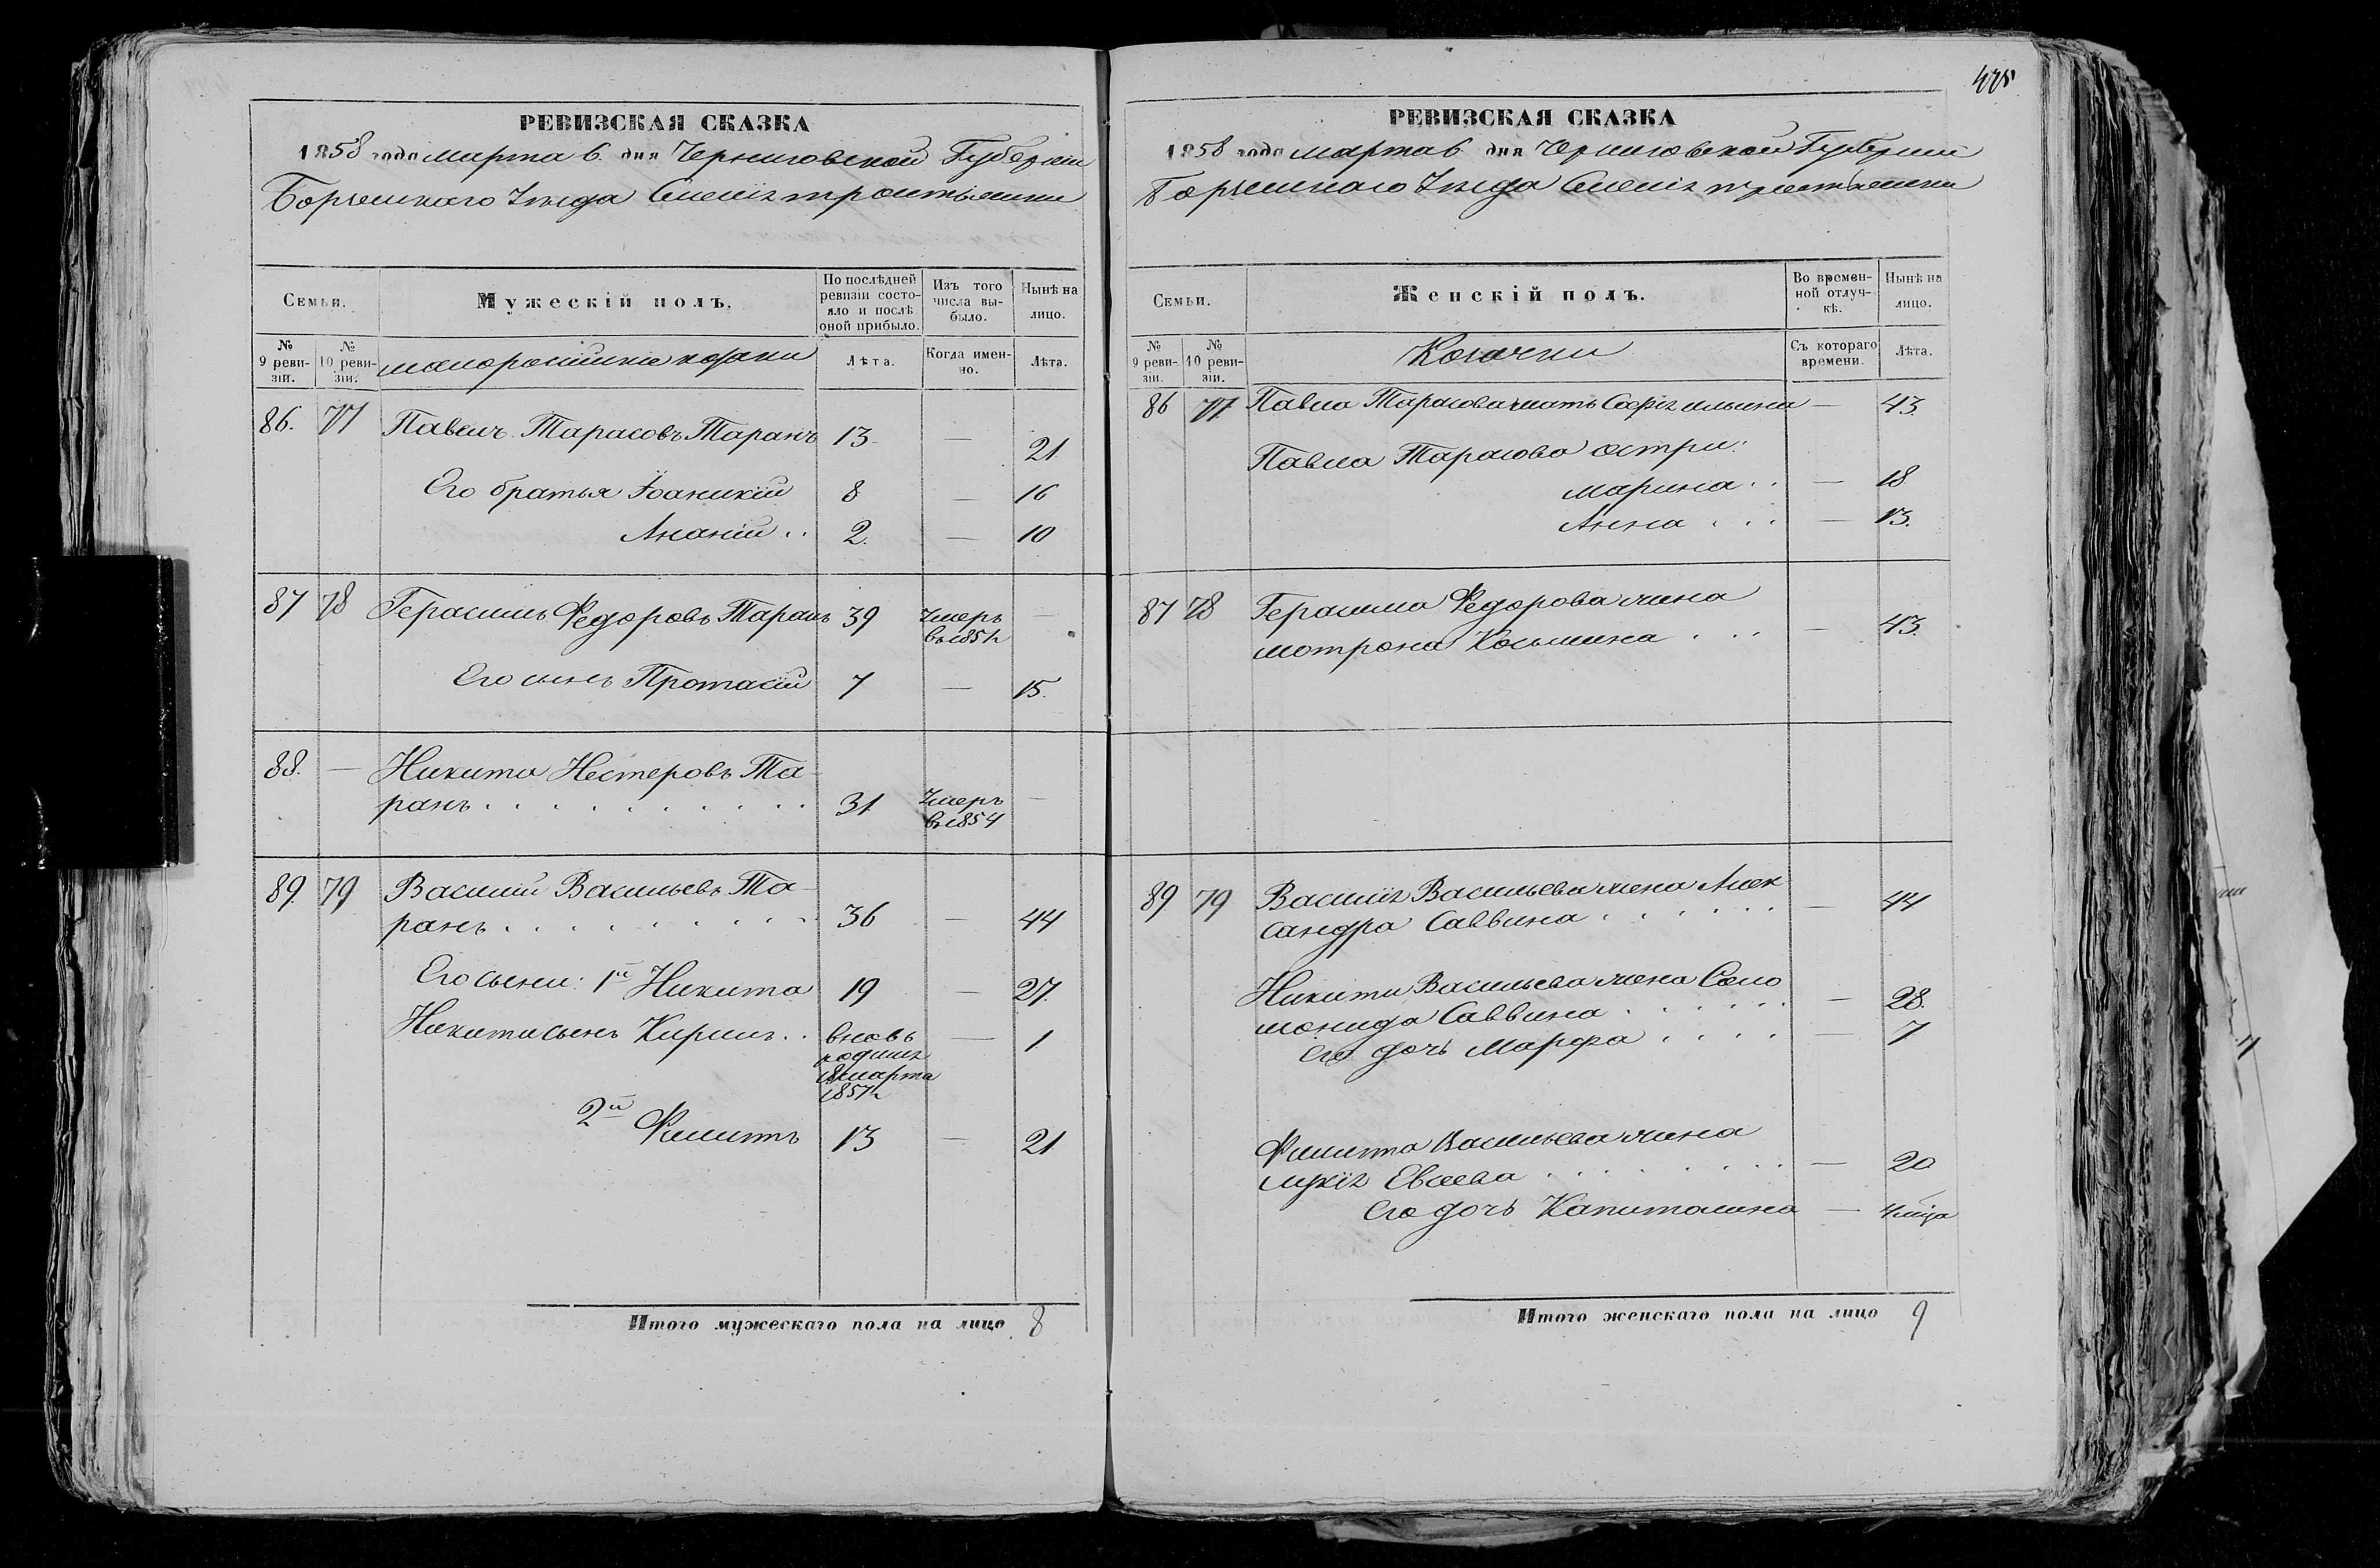 РЕВИЗСКАЯ СКАЗКА
1858 года марта 6 дня Черниговской Губерніи
Борзенскаго Уезда Селенія
Семьи.
Мужескій полъ.
По послѣдней ревизіи состояло и послѣ оной прибыло.
Изъ того числа выбыло.
Нынѣ на лицо.
№ 9 ревизіи.
№ 10 ревизіи.
малоросійские козаки
Лѣта.
Когда именно.
Лѣта.
86. 77 Павелъ Тарасовъ Таранъ 13 — 21
Его братья Іоаникій 8 — 16
Ананій .. 2. — 10
87 78 Герасимъ Федоровъ Таранъ 39 Умеръ —
Его сынъ Протасій 7 — 15.
88. — Никита Нестеровъ Та-
ранъ . . . . . . . . . 31 Умеръ —
в 1854
89. 79 Василій Васильевъ Та-
ранъ . . . . . . . . . 36 — 44
Его сыни: 1й Никита 19 — 27
Никити сынъ Кирилъ .. вновь — 1
родился
18 марта
1857
2й Филитъ 13 — 21
Итого мужескаго пола на лицо 8
РЕВИЗСКАЯ СКАЗКА
1858 года марта 6 дня Черниговской Губерніи
Борзенскаго Уезда Селенія
Семьи.
Женскій полъ.
Во временной отлучкѣ.
Нынѣ на лицо.
№ 9 ревизіи.
№ 10 ревизіи.
Козачки
Съ котораго времени.
Лѣта.
86 77 Павла Тарасова мать Софія ильина — 43.
Павла Тарасова сестри:
марина .. — 18
Анна . . . — 13.
87 78 Герасима Федорова жена
мотрона Косьмина . . . — 43.
89 79 Василія Васильева жена Алек
сандра Саввина . . . . . . — 44
Никити Васильева жена Соло
монида Саввина . . . . . . — 28.
его дочь Марфа . . . . — 7
Филита Васильева жена
лукія Евсеева . . . . . . . — 20
его дочь Капиталина — 4 міца
Итого женскаго пола на лицо 9